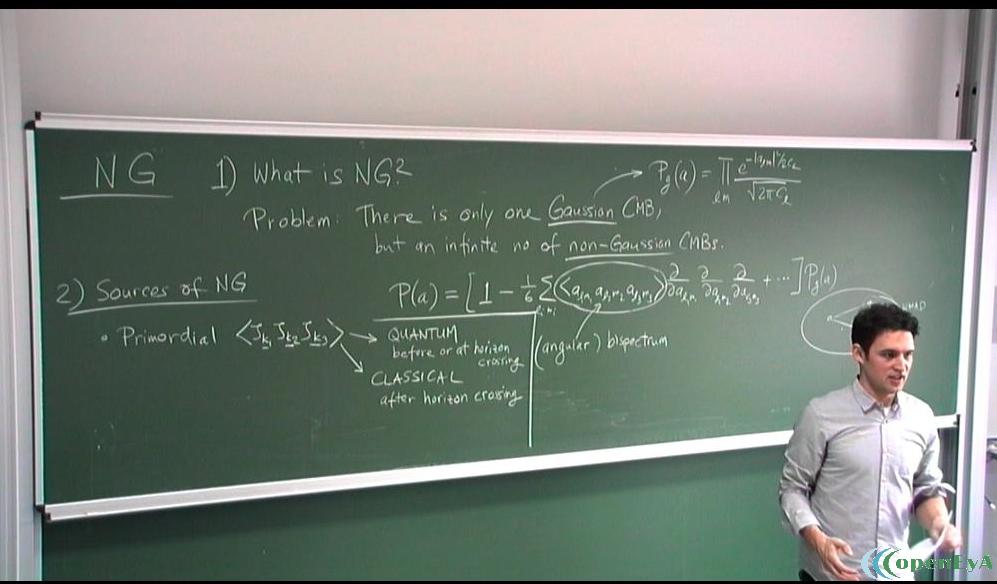 NG
1) What is NG?
P_g(a) = ∏_{ℓm} e^{-|a_{ℓm}|²/2C_ℓ} / √(2πC_ℓ)
Problem: There is only one Gaussian CMB,
but an infinite no of non-Gaussian CMBs.
P(a) = [1 - 1/6 Σ ⟨a_{ℓ₁m₁} a_{ℓ₂m₂} a_{ℓ₃m₃}⟩ ∂/∂a_{ℓ₁m₁} ∂/∂a_{ℓ₂m₂} ∂/∂a_{ℓ₃m₃} + ...] P_g(a)
(angular) bispectrum
2) Sources of NG
• Primordial ⟨ζ_{k₁} ζ_{k₂} ζ_{k₃}⟩
QUANTUM
before or at horizon
crossing
CLASSICAL
after horizon crossing
openEyA